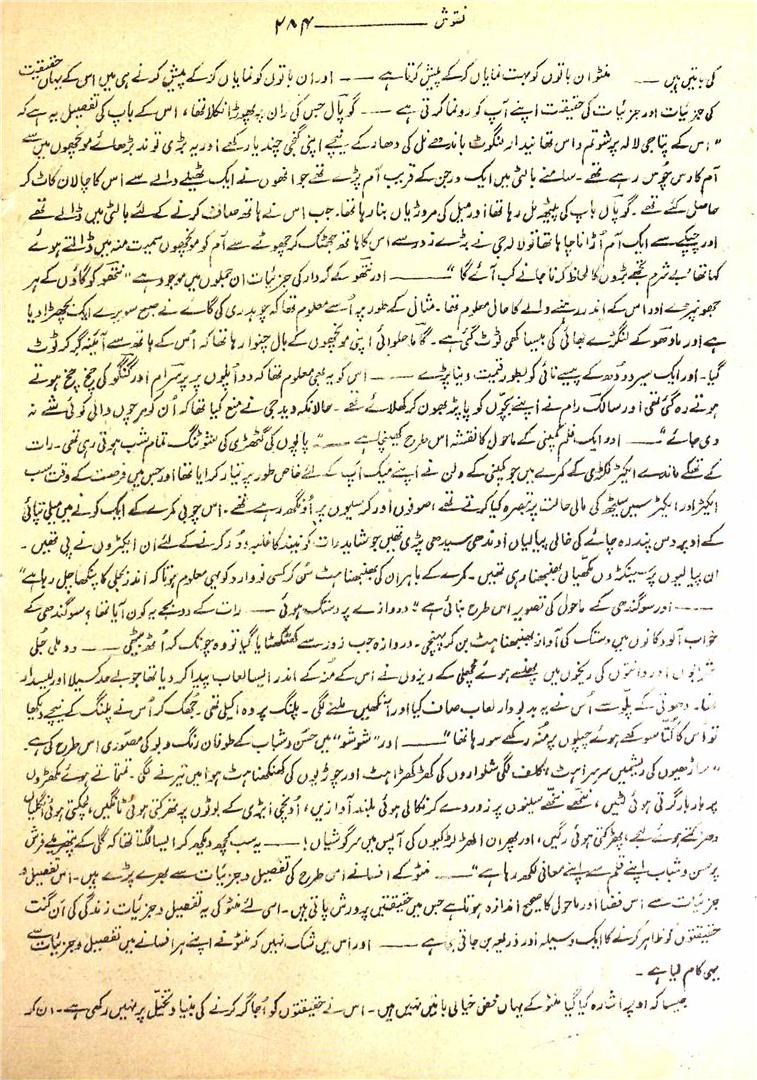 نقوش ــــــــــ ۲۸۴
کی باتیں ہیں ــــ منٹو ان باتوں کو بہت نمایاں کرکے پیش کرتا ہے ــــ اور ان باتوں کو نمایاں کرکے پیش کرنے ہی میں اس کے یہاں حقیقت
کی جزئیات اور جزئیات کی حقیقت اپنے آپ کو رونما کرتی ہے ــــ گوپال جس کی ران پر پھوڑا نکلا تھا، اس کے باپ کی تفصیل یہ ہے کہ
"اس کے پتا جی لالہ پرشوتم داس تھانیدار لنگوٹ باندھے نل کی دھار کے نیچے اپنی گنجی چندیا رکھے اور یہ بڑی توند بڑھائے مونچھوں میں سے
آم کا رس چوس رہے تھے۔ سامنے بالٹی میں ایک درجن کے قریب آم پڑے تھے جو انھوں نے ایک ٹھیلے والے سے اس کا چالان کاٹ کر
حاصل کئے تھے۔ گوپال باپ کی پیٹھ مل رہا تھا اور میل کی مروڑیاں بنا رہا تھا۔ جب اس نے ہاتھ صاف کرنے کے لئے بالٹی میں ڈالے تھے
اور چپکے سے ایک آم اُڑانا چاہا تھا تو لالہ جی نے بڑے زور سے اس کا ہاتھ جھٹک کر چھوٹے سے آم کو مونچھوں سمیت منہ میں ڈالتے ہوئے
کہا تھا بے شرم تجھے بڑوں کا لحاظ کرنا جانے کب آئے گا" ــــ اور نتھو کے کردار کی جزئیات ان جملوں میں موجود ہے "نتھو کو گاؤں کے ہر
جھونپڑے اور اس کے اندر رہنے والے کا حال معلوم تھا۔ مثال کے طور پر اُسے معلوم تھا کہ چوہدری کی گائے نے صبح سویرے ایک بچھڑا دیا
ہے اور مادھو کے لنگڑے بھائی کی بیساکھی ٹوٹ گئی ہے۔ گاما حلوائی اپنی مونچھوں کے بال چنوا رہا تھا کہ اُس کے ہاتھ سے آئینہ گر کر ٹوٹ
گیا۔ اور ایک سیر دودھ کے پیسے نائی کو بطور قیمت دینا پڑے ــــ اس کو یہ بھی معلوم تھا کہ دو اُپلوں پر پرسرام اور گنگو کی چخ چخ ہوتے
ہوتے رہ گئی تھی اور سالک رام نے اپنے بچّوں کو پاپڑ بھون کر کھلائے تھے۔ حالانکہ وید جی نے منع کیا تھا کہ اُن کو مرچوں والی کوئی شے نہ
دی جائے" ــــ اور ایک فلم کمپنی کے ماحول کا نقشہ اس طرح کھینچا ہے ــــ "پاپوں کی گٹھڑی کی شوٹنگ تمام شب ہوتی رہی تھی۔ رات
کے تھکے ماندے ایکٹر لکڑی کے کمرے میں جو کمپنی کے ولن نے اپنے میک اپ کے لئے خاص طور پر تیار کرایا تھا اور جس میں فرصت کے وقت سب
ایکٹر اور ایکٹرسیں سیٹھ کی مالی حالت پر تبصرہ کیا کرتے تھے، صوفوں اور کرسیوں پر اُونگھ رہے تھے۔ اس چوبی کمرے کے ایک کونے میں میلی تپائی
کے اوپر دس پندرہ چائے کی خالی پیالیاں اوندھی سیدھی پڑی تھیں جو شاید رات کو نیند کا غلبہ دور کرنے کے لئے ان ایکٹروں نے پی تھیں۔
ان پیالیوں پر سینکڑوں مکھیاں بھنبھنا رہی تھیں۔ کمرے کے باہر ان کی بھنبھناہٹ سُن کر کسی نووارد کو یہی معلوم ہوتا کہ اندر بجلی کا پنکھا چل رہا ہے"
ــــ اور سوگندھی کے ماحول کی تصویر اس طرح بنائی ہے "دروازے پر دستک ہوئی ــــ رات کے دو بجے یہ کون آیا تھا؟ سوگندھی کے
خواب آلود کانوں میں دستک کی آواز بھنبھناہٹ بن کر پہنچی۔ دروازہ جب زور سے کھٹکھٹایا گیا تو وہ چونک کر اُٹھ بیٹھی ــــ دو ملی جُلی
شرابوں اور دانتوں کی ریخوں میں پھنسے ہوئے مچھلی کے ریزوں نے اس کے مُنہ کے اندر ایسا لعاب پیدا کر دیا تھا جو بے حد کسیلا اور لیسدار
تھا۔ دھوتی کے پلّو سے اُس نے یہ بدبودار لعاب صاف کیا اور آنکھیں ملنے لگی۔ پلنگ پر وہ اکیلی تھی۔ جُھک کر اُس نے پلنگ کے نیچے دیکھا
تو اُس کا کُتّا سوکھے ہوئے چپلوں پر مُنہ رکھے سو رہا تھا" ــــ اور "شوشو" میں حُسن و شباب کے طوفان رنگ و بو کی مصوّری اس طرح کی ہے۔
"ساڑھیوں کی ریشمیں سرسراہٹ، کلف لگی شلواروں کی کھڑکھڑاہٹ اور چوڑیوں کی کھنکھناہٹ ہوا میں تیرنے لگی۔ تمتماتے ہوئے مکھڑوں
پر بار بار گرتی ہوئی لٹیں، ننھے ننھے سینوں پر زور دے کر نکالی ہوئی بلند آوازیں، اُونچی ایڑی کے بوٹوں پر تھرکتی ہوئی ٹانگیں، لچکتی ہوئی انگلیاں
دھڑکتے ہوئے لہجے، پھڑکتی ہوئی رگیں، اور پھر ان الھڑ لڑکیوں کی آپس میں سرگوشیاں! ــــ یہ سب کچھ دیکھ کر ایسا لگتا تھا کہ گلی کے پتھریلے فرش
پر حسن و شباب اپنے قلم سے اپنے معانی لکھ رہا ہے" ــــ منٹو کے افسانے اس طرح کی تفصیل و جزئیات سے بھرے پڑے ہیں۔ اس تفصیل و
جزئیات سے اس فضا اور ماحول کا صحیح اندازہ ہوتا ہے جس میں حقیقتیں پرورش پاتی ہیں۔ اسی لئے منٹو کی یہ تفصیل و جزئیات زندگی کی اَن گنت
حقیقتوں کو ظاہر کرنے کا ایک وسیلہ اور ذریعہ بن جاتی ہے ــــ اور اس میں شک نہیں کہ منٹو نے اپنے ہر افسانے میں تفصیل و جزئیات سے
یہی کام لیا ہے۔
جیسا کہ اوپر اشارہ کیا گیا منٹو کے یہاں محض خیالی باتیں نہیں ہیں۔ اس نے حقیقتوں کو اُجاگر کرنے کی بنیاد تخیّل پر نہیں رکھی ہے۔ ان کر